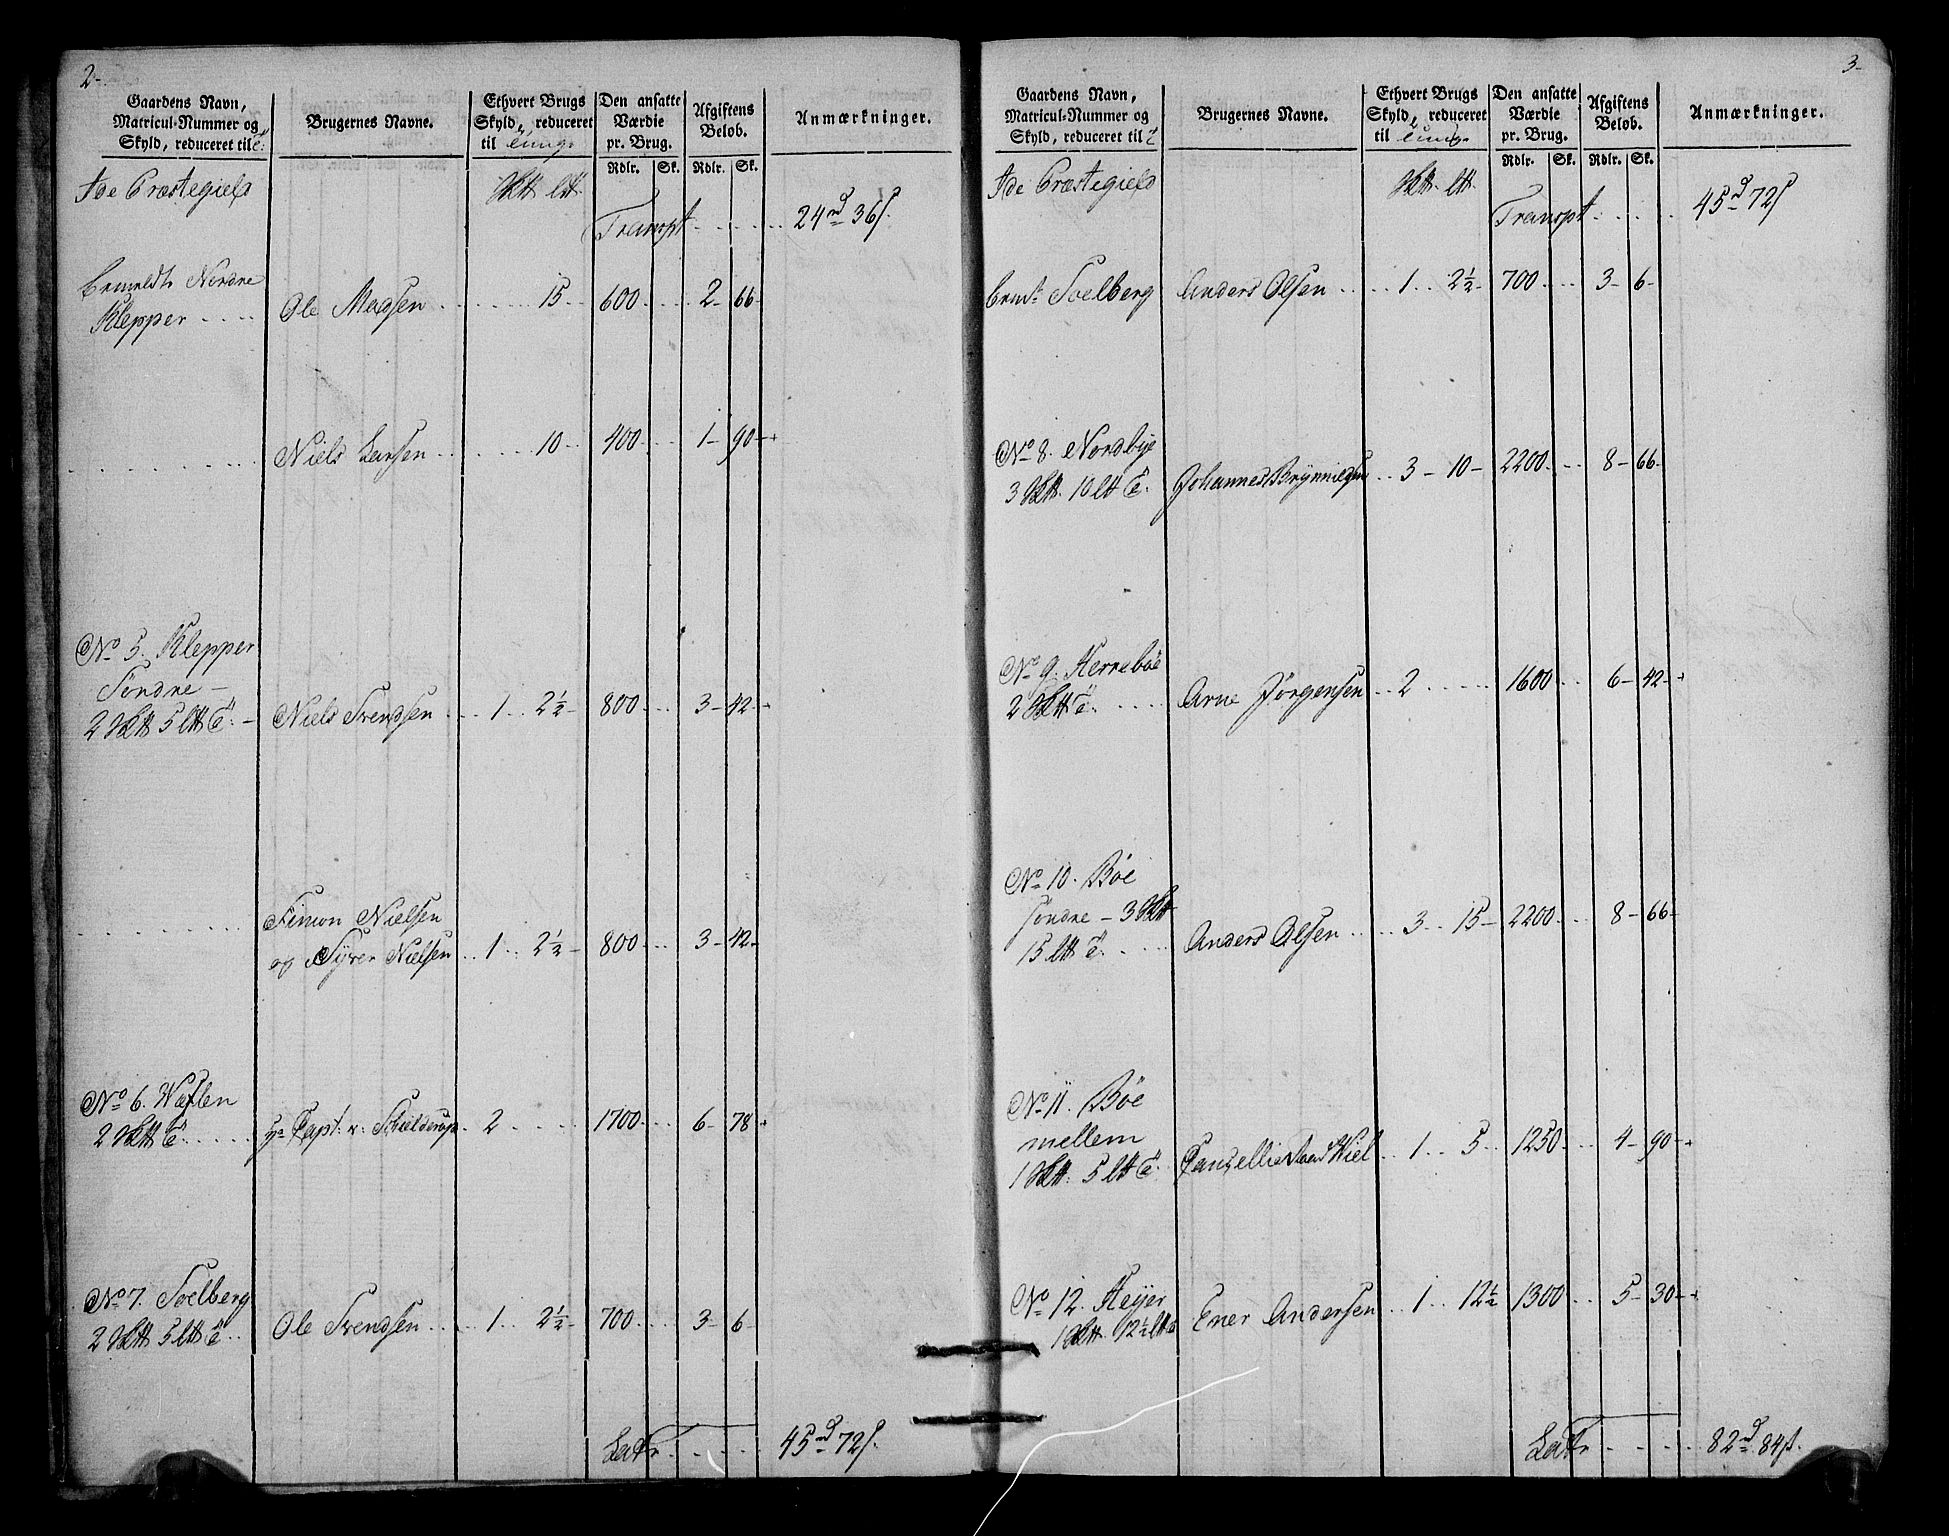 2-
Gaardens Navn,
Matricul-Nummer og
Skyld, reduceret til
Brugernes Navne.
Ethvert Brugs
Skyld, reduceret
til tunge
Den ansatte
Værdie
pr. Brug.
Rdlr. Sk.
Afgiftens
Beløb.
Rdlr. Sk.
Anmærkninger.
Ide Præstegield
Transpt ..... 24 rd 36 s.
bemeldte Nordre
Klepper .... Ole Madsen ...... 15 .. 600 .... 2- 66-
........ Niels Larsen ...... 10 .. 400 .... 1- 90-
No 5. Klepper
Søndre -
2 Sktt 5 ltt T. - Niels Svendsen ... 1 .. 2½ - 800 ... 3- 42-
Simon Nielsen
og Syver Nielsen .. 1 .. 2½ - 800 ... 3- 42-
No 6. Wœflen
2 Sktt T. .... Hr Capt. v. Schielderup. 2 ..... 1700 ... 6- 78-
No 7. Soelberg
2 Sktt 5 ltt T .. Ole Svendsen .... 1 .. 2½ - 700 ... 3- 6-
Latr. ..... 45 rd 72 s.
3-
Gaardens Navn,
Matricul-Nummer og
Skyld, reduceret til
Brugernes Navne.
Ethvert Brugs
Skyld, reduceret
til tunge
Den ansatte
Værdie
pr. Brug.
Rdlr. Sk.
Afgiftens
Beløb.
Rdlr. Sk.
Anmærkninger.
Ide Præstegield
Transpt ..... 45 rd 72 s
bemte Soelberg Anders Olsen .... 1 .. 2½ - 700 .... 3- 6-
No 8. Nordbye
3 Sktt. 10 ltt T. Johannes Brynnildsen .. 3 - 10 - 2200 ... 8- 66-
No 9. Herrebøe
2 Sktt T. .... Arne Jørgensen .. 2 ..... 1600 ... 6- 42-
No 10. Bøe
søndre - 3 Sktt
15 ltt T. ... Anders Olsen .... 3 .. 15 - 2200 ... 8- 66-
No 11. Bøe
mellem
1 Sktt. 5 ltt T. Cancellie Raad Wiel .. 1 .. 5 .. 1250 ... 4- 90-
No 12. Heyer
1 Sktt. 12½ ltt T Ener Andersen .. 1 .. 12½ 1300 ... 5- 30-
Latr ..... 82 rd 84 s.